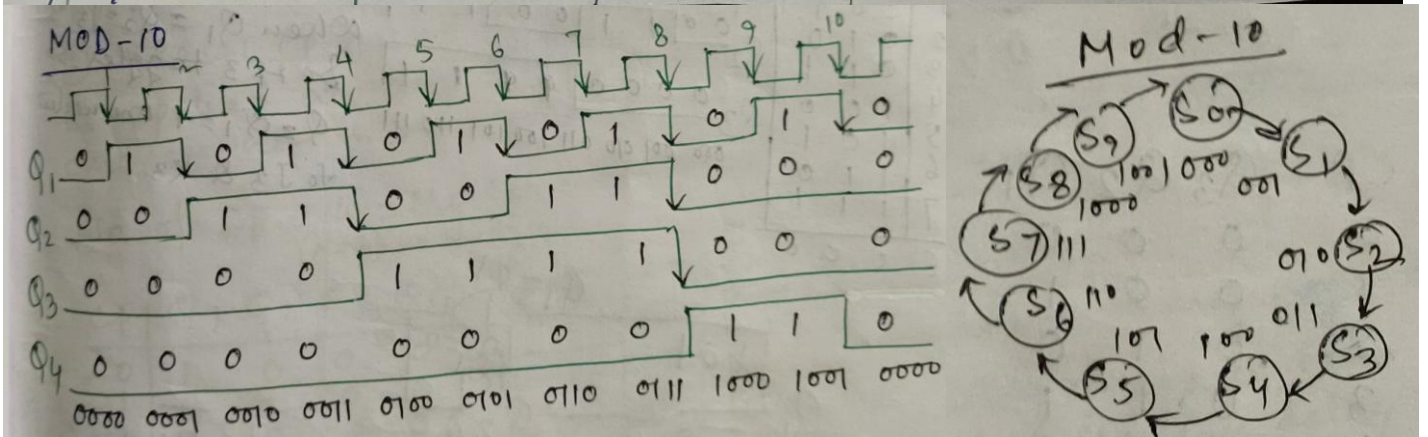 MOD-10
2 3 4 5 6 7 8 9 10
Q1 0 1 0 1 0 1 0 1 0 1 0
Q2 0 0 1 1 0 0 1 1 0 0 0
Q3 0 0 0 0 1 1 1 1 0 0 0
Q4 0 0 0 0 0 0 0 0 1 1 0
0000 0001 0010 0011 0100 0101 0110 0111 1000 1001 0000
Mod-10
S0 000
S1 001
S2 010
S3 011
S4 100
S5 101
S6 110
S7 111
S8 1000
S9 1001